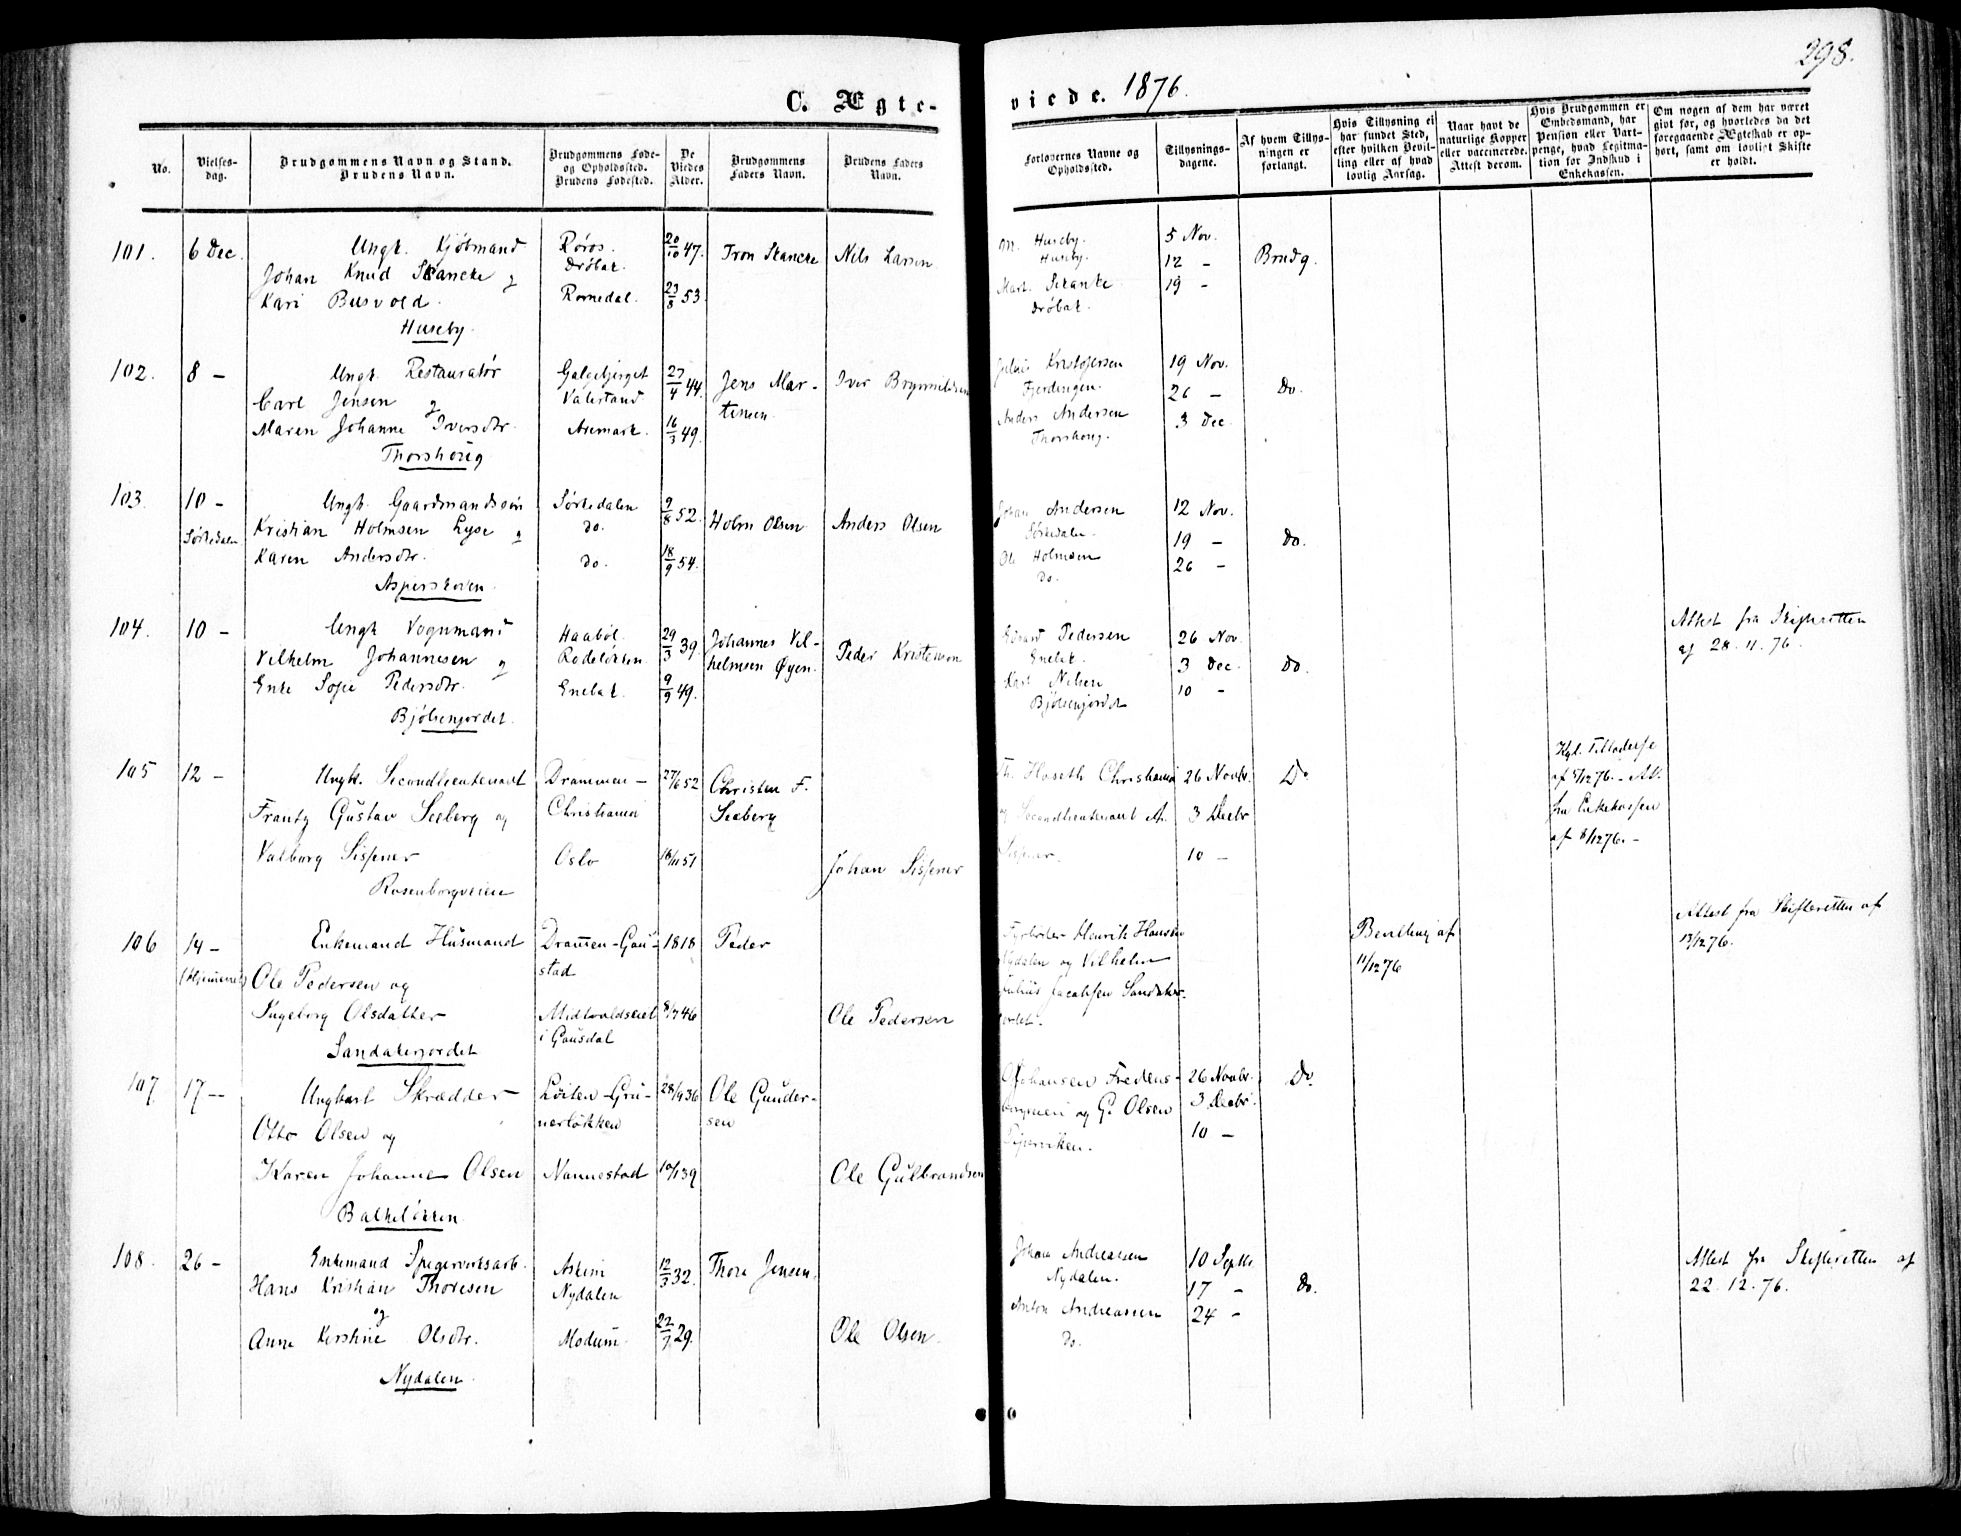 298.
C. Ægte-
viede. 1876.
No.
Vielses-
dag.
Brudgommens Navn og Stand.
Brudens Navn.
Brudgommens Føde-
og Opholdssted.
Brudens Fødested.
De
Viedes
Alder.
Brudgommens
Faders Navn.
Brudens Faders
Navn.
Forlovernes Navne og
Opholdssted.
Tillysnings-
dagene.
Af hvem Tillys-
ningen er
forlangt.
Hvis Tillysning ei
har fundet Sted,
efter hvilken Bevil-
ling eller af hvad
lovlig Aarsag.
Naar havt de
naturlige Kopper
eller vaccinerede.
Attest derom.
Hvis Brudgommen er
Embedsmand, har
Pension eller Vart-
penge, hvad Legitma-
tion for Indskud i
Enkekassen.
Om nogen af dem har været
givt før, og hvorledes da det
foregaaende Ægteskab er op-
hørt, samt om lovligt Skifte
er holdt.
101.
6 Dec.
Ungk. Kjøbmand
Johan Knud Skancke og
Kari Busvold.
Huseby.
Røros.
Drøbak.
Romedal.
20/10 47.
23/8 53.
Tron Skancke
Nils Larsen
M. Huseby.
Huseby.
Mart. Skanke
Drøbak.
5 Nov.
12 -
19 -
Brudg.
102.
8 -
Ungk. Restauratør
Carl Jensen
og
Maren Johanne Iversdtr.
Thorshoug
Galgebjerget
Valestrand
Aremark.
27/4 44.
16/3 49.
Jens Mar-
tinsen
Iver Brynnildsen
Kristofersen
Fjerdingen.
Anders Andersen
Thorshoug.
19 Nov.
26 -
3 Dec.
Do.
103.
10 -
Sørkedalen
Ungk. Gaardmandssøn
Kristian Holmsen Lyse og
Karen Andersdtr.
Asperskoven.
Sørkedalen
do.
do.
9/8 52.
18/9 54.
Holm Olsen
Anders Olsen
Johan Andersen
Sørkedalen.
Ole Holmsen
do.
12 Nov.
19 -
26 -
Do.
104.
10 -
Ungk Vognmand
Vilhelm Johannesen og
Enke Sofie Pedersdtr.
Bjølsenjordet.
Haabøl.
Rodeløkken.
Enebak.
29/3 39.
9/9 49.
Johannes Vil-
helmsen Øyen.
Peder Kristenson
Edvard Pedersen
Enebak.
Karl Nilsen
Bjølsenjordet
26 Nov.
3 Dec.
10 -
Do.
Attest fra Skifteretten
af 28.11.76.
105
12 -
Ungk. Secondlieutenant
Frantz Gustav Seeberg og
Valborg Sissener
Rosenborgveien
Drammen -
Christiania
Oslo
27/6 52
16/11 51
Christen F.
Seeberg
Johan Sissener
Th. Haseth Christiania
og Secondlieutenant A.
Sissener.
26 Novbr.
3 Decbr
10 -
Do
Kgl. Tilladelse
af 5/12 76. - Att.
fra Enkekassen
af 8/12 76. -
106
14 -
(Hjemme)
Enkemand Husmand
Ole Pedersen og
Ingeborg Olsdatter
Sandakerjordet
Drammen - Gau-
stad
Midtvoldseiet
i Gausdal
1818
8/7 46
Peder
Ole Pedersen
Fyrbøder Henrik Hansen
Nydalen og Vilhelm
Julius Jacobsen Sandaker-
jordet.
Bevilling af
11/12 76
Attest fra Skifteretten af
13/12 76.
107
17 -
Ungkarl Skrædder
Otto Olsen og
Karen Johanne Olsen
Balkeløkken
Løiten - Grü-
nerløkken
Nannestad
28/9 36
10/1 39
Ole Gunder-
sen
Ole Gulbrandsen
O Johansen Fredens-
borgveien og G. Olsen
Piperviken.
26 Novbr.
3 Decbr.
10 -
Do
108.
26 -
Enkemand Spigerverksarb.
Hans Kristian Thoresen
og
Anne Kirstine Olsdtr.
Nydalen.
Askim
Nydalen
Modum.
12/3 32.
22/7 29.
Thore Jensen.
Ole Olsen.
Johan Andreassen
Nydalen.
Anton Andreassen
do.
10 Septbr
17 -
24 -
Do.
Attest fra Skifteretten af
22.12.76.